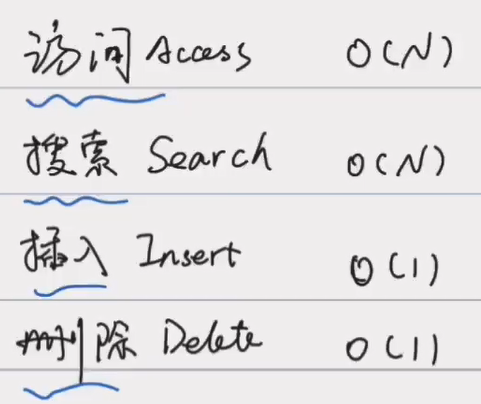 访问 Access O(N)
搜索 Search O(N)
插入 Insert O(1)
删除 Delete O(1)